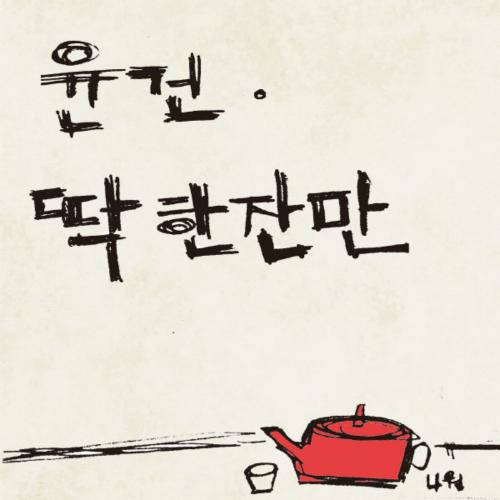 윤건.
딱 한잔만
나원